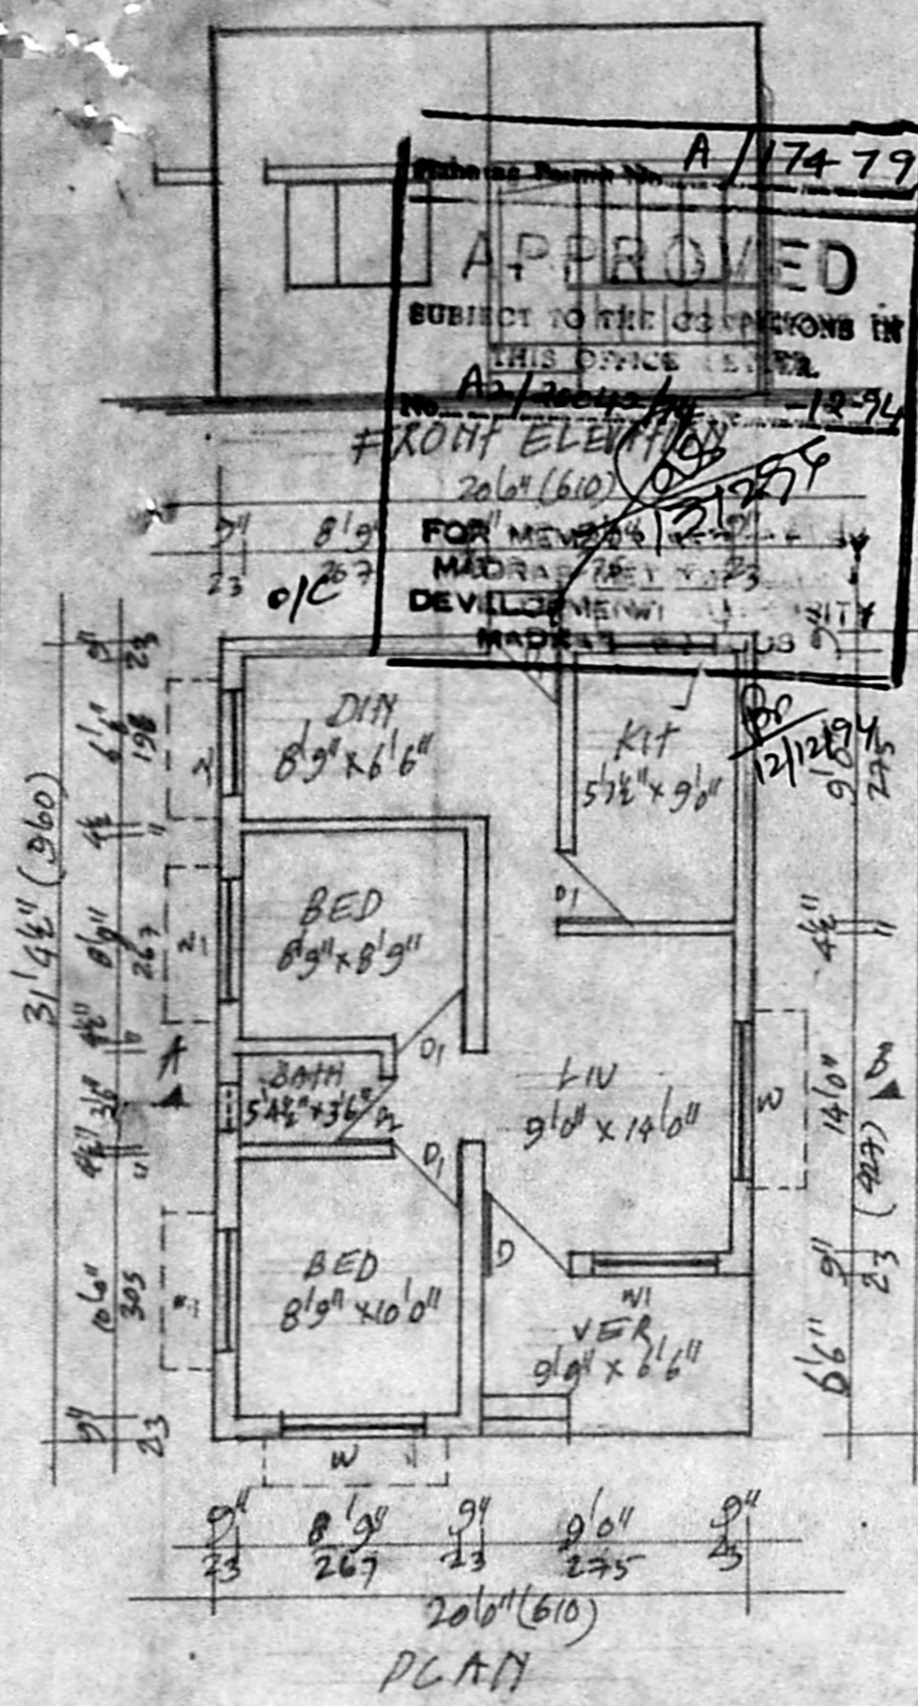 A / 174 79
APPROVED
SUBJECT TO THE CONDITIONS IN
THIS OFFICE LETTER
No. A2/20042/94 -12-94
FRONT ELEVATION
20'0" (610)
9" 8'9"
23 267 23
FOR MEMBER
MADRAS MET
DEVELOPMENT AUTHORITY
MADRAS
O/C
12/12/94
DIN
8'9" x 6'6"
KIT
5'7½" x 9'0"
D1
BED
8'9" x 8'9"
D1
BATH
5'4½" x 3'6"
D2
LIV
9'0" x 14'0"
W
D1
BED
8'9" x 10'0"
D
W1
VER
9'9" x 6'6"
W
31'4½" (960)
9" 23
6'6" 198
4½" 11
8'9" 267
4½" 11
3'6"
4½" 11
10'0" 305
9" 23
A
9"
9'0" 275
4½" 11
14'0" (427)
B
9" 23
6'6"
9" 8'9" 9" 9'0" 9"
23 267 23 275 23
20'0" (610)
PLAN